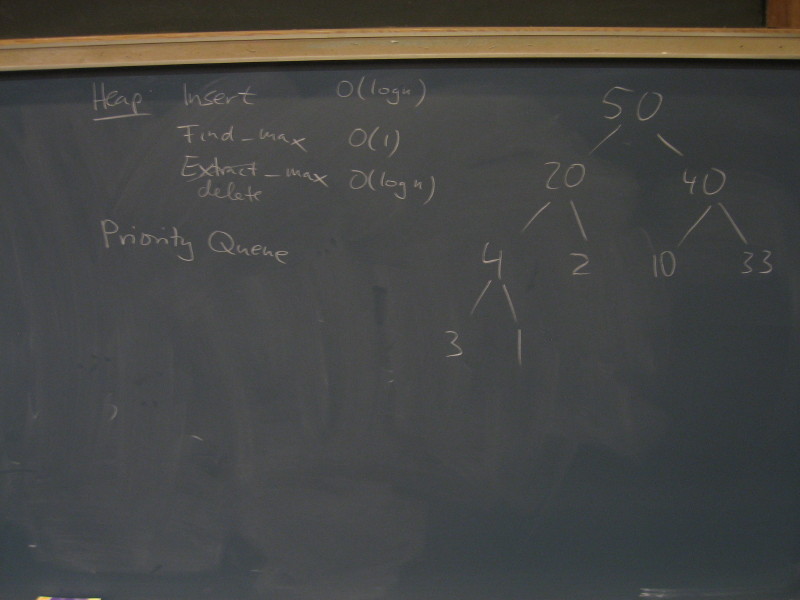 Heap Insert O(logn)
Find_max O(1)
Extract_max O(logn)
delete
Priority Queue
50
20 40
4 2 10 33
3 1